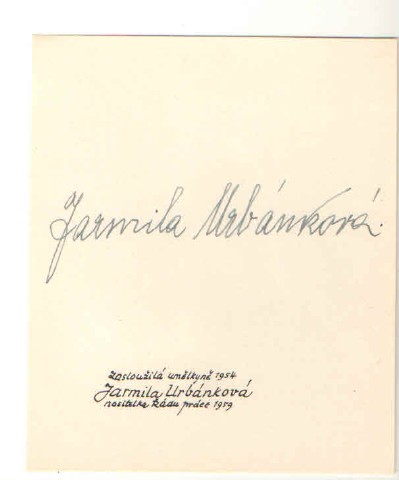 Jarmila Urbánková.
zasloužilá umělkyně 1954
Jarmila Urbánková
nositelka Řádu práce 1959